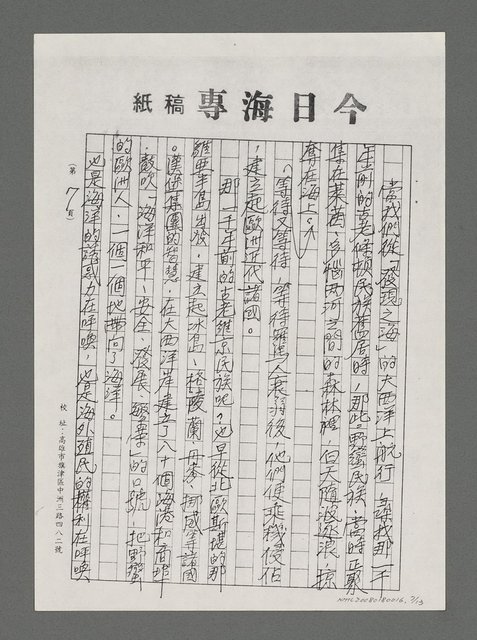 今日海專 稿紙
當我們從「發現之海」的大西洋上航行,尋找那一千
年前的老條頓民族舊居時,那些野蠻民族,當時正聚
集在萊茵、多惱两河之間的森林裡,白天隨波逐浪,掠
奪在海上。
等待又等待,等待羅馬人衰弱後,他們便乘機侵佔
,建立起歐洲近代諸國。
那一千年前的老維京民族呢?也早從北歐斯堪的那
維亞半島出發,建立起冰島、格陵蘭、丹麥、挪威等諸國
。漢使集團的智慧,在大西洋岸建立了八十個海港和商埠
,鼓吹「海洋和平、安全、發展、繁榮」的口號,把野蠻
的歐洲人,一個一個地帶向了海洋。
也是海洋的誘惑力在呼喚,也是海外殖民的權利在呼喚
(第 7 頁)
校址:高雄市旗津區中洲三路四八二號
NMTL20080180016, 7/13